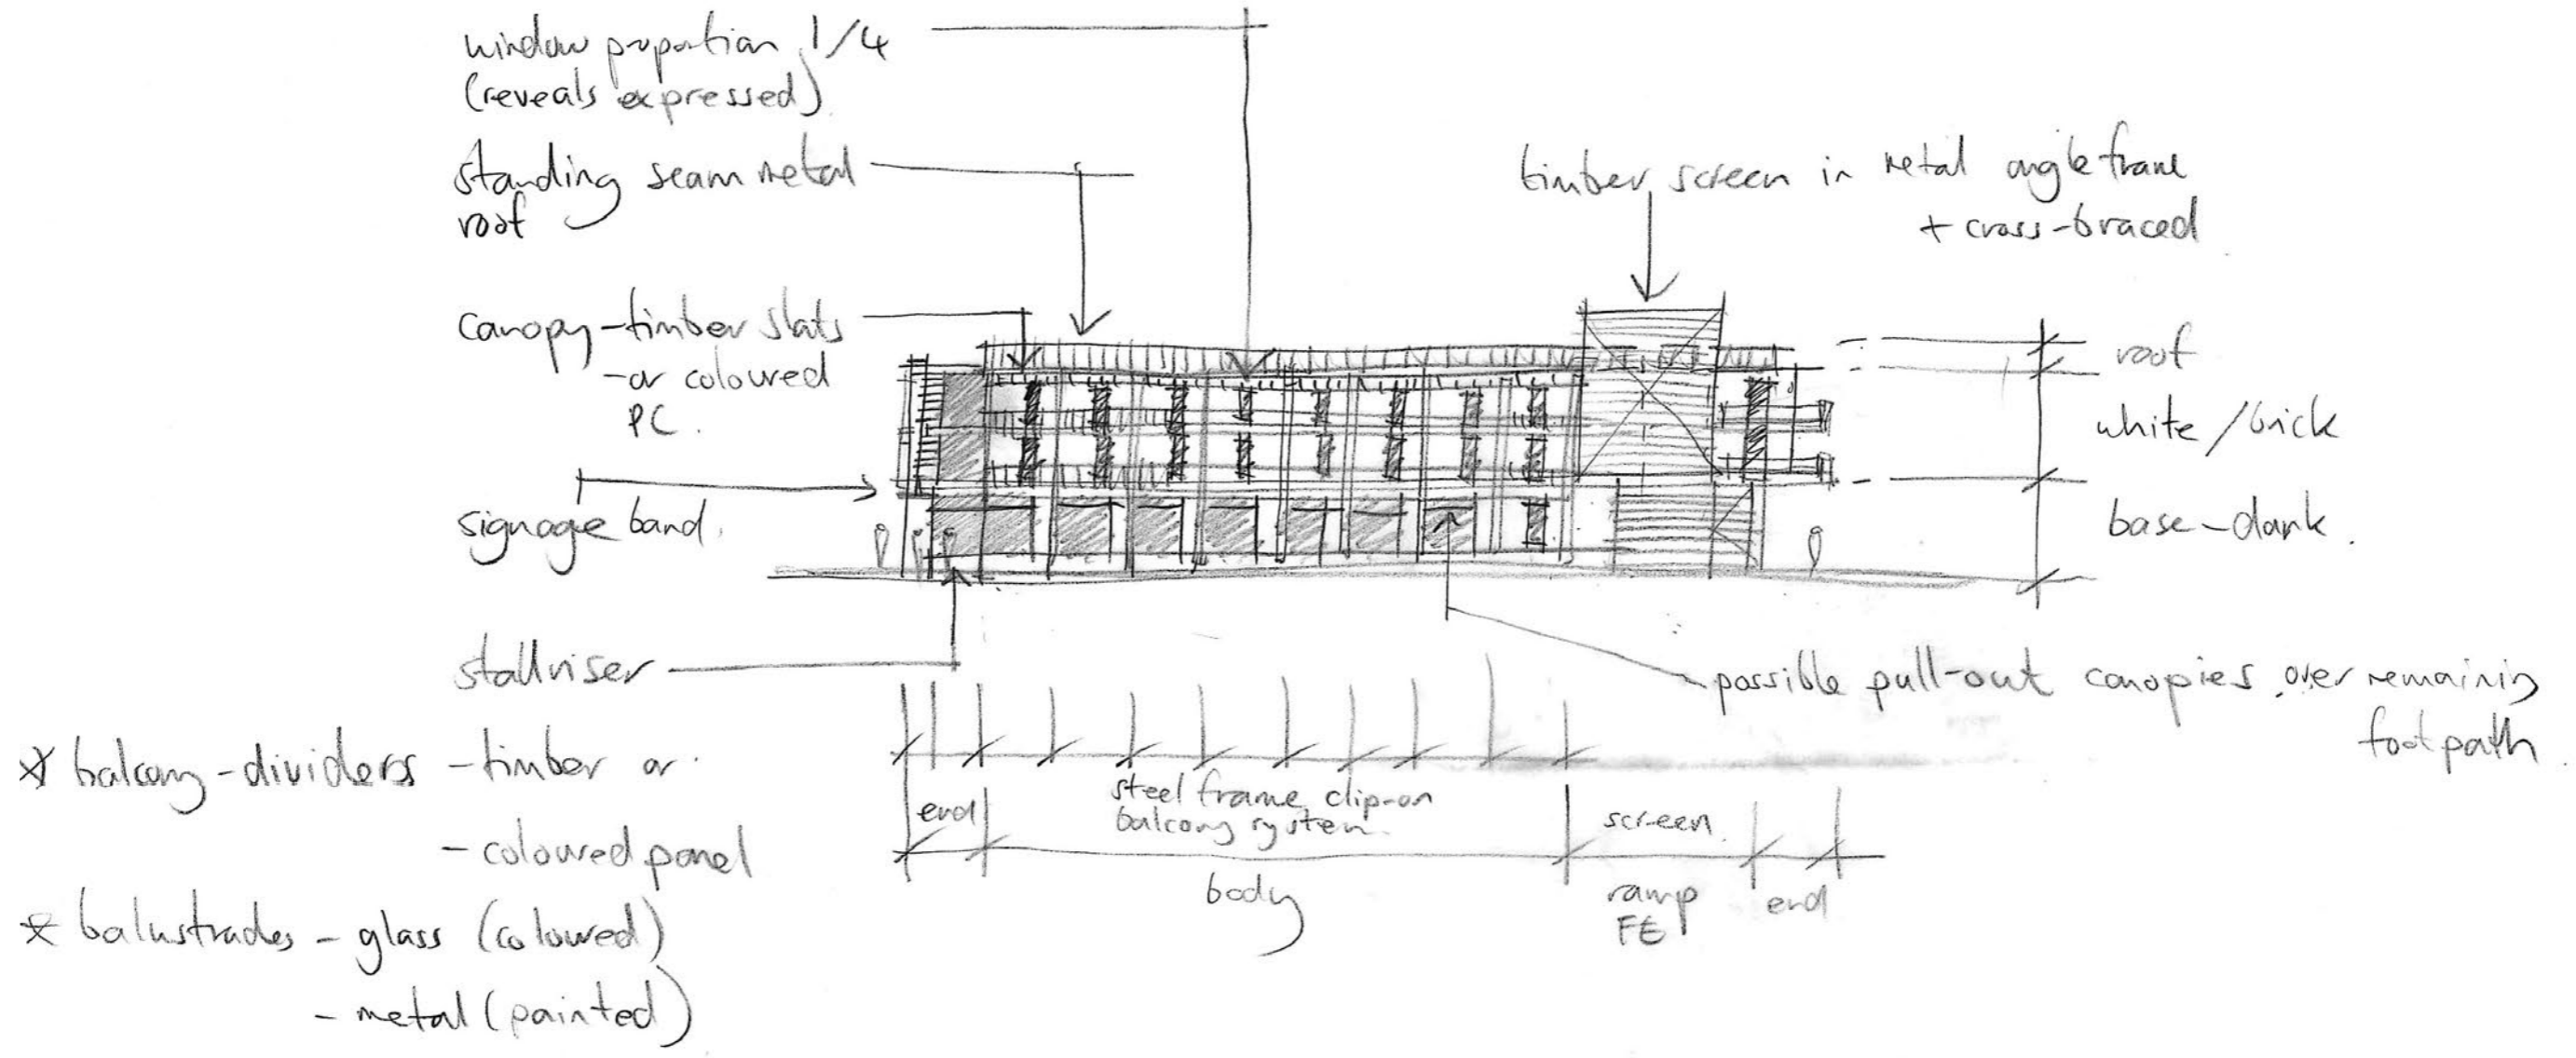 window proportion 1/4
(reveals expressed)
standing seam metal
roof
canopy - timber slats
- or coloured
PC.
signage band.
stallriser
* balcony - dividers - timber or
- coloured panel
* balustrades - glass (coloured)
- metal (painted)
timber screen in metal angle frame
+ cross-braced
roof
white / brick
base - dark.
possible pull-out canopies over remaining
footpath.
end
steel frame clip-on
balcony system.
body
screen
ramp
FE
end